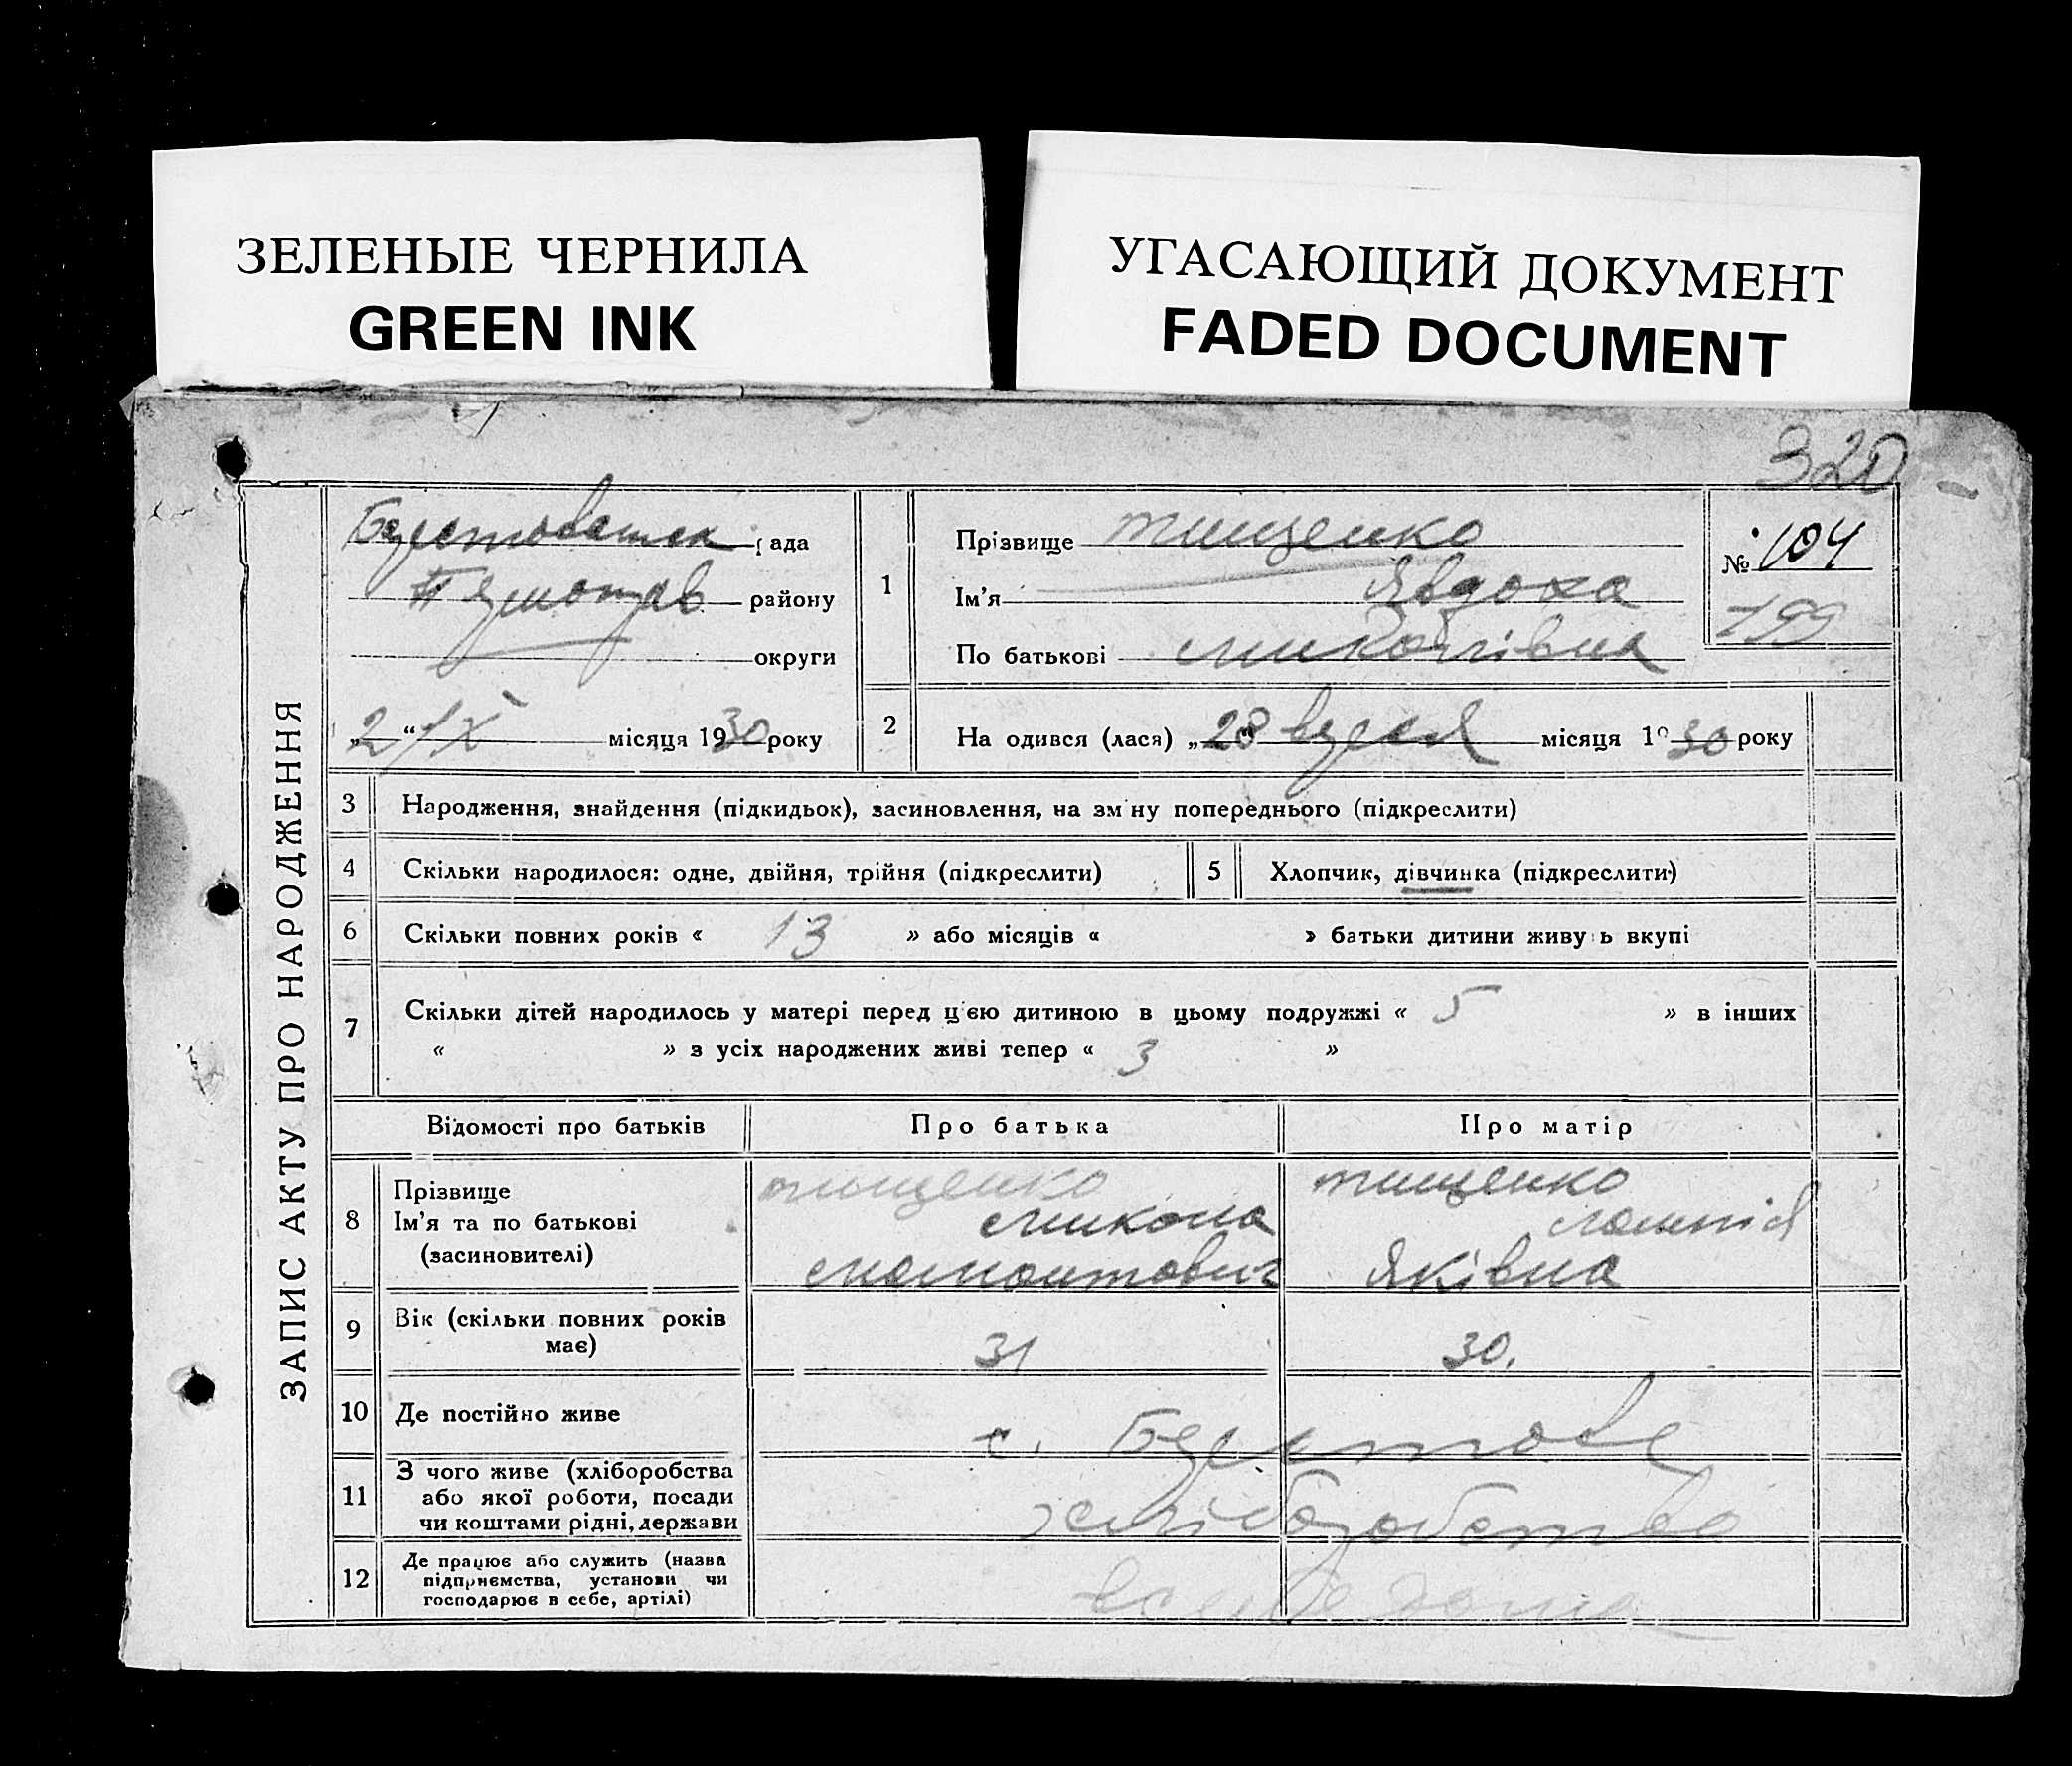 ЗЕЛЕНЫЕ ЧЕРНИЛА
GREEN INK
УГАСАЮЩИЙ ДОКУМЕНТ
FADED DOCUMENT
320
ЗАПИС АКТУ ПРО НАРОДЖЕННЯ
рада
району
округи
„2“ IX місяця 1930 року
1
Прізвище Тищенко
Ім'я Явдоха
По батькові Миколівна
№ 104
199
2
На одився (лася) „28 місяця 1930 року
3 Народження, знайдення (підкидьок), засиновлення, на зм ну попереднього (підкреслити)
4 Скільки народилося: одне, двійня, трійня (підкреслити)
5 Хлопчик, дівчинка (підкреслити)
6 Скільки повних років « 13 » або місяців « » батьки дитини живу ь вкупі
7 Скільки дітей народилось у матері перед ц'єю дитиною в цьому подружжі « 5 » в інших
« » з усіх народжених живі тепер « 3 »
Відомості про батьків Про батька Про матір
8 Прізвище
Ім'я та по батькові
(засиновителі)
Тищенко
Микола
Мамонтович
Тищенко
Яківна
9 Вік (скільки повних років
має)
31
30.
10 Де постійно живе
с.
11 З чого живе (хліборобства
або якої роботи, посади
чи коштами рідні, держави
хліборобство
12 Де працює або служить (назва
підприємства, установи чи
господарює в себе, артілі)